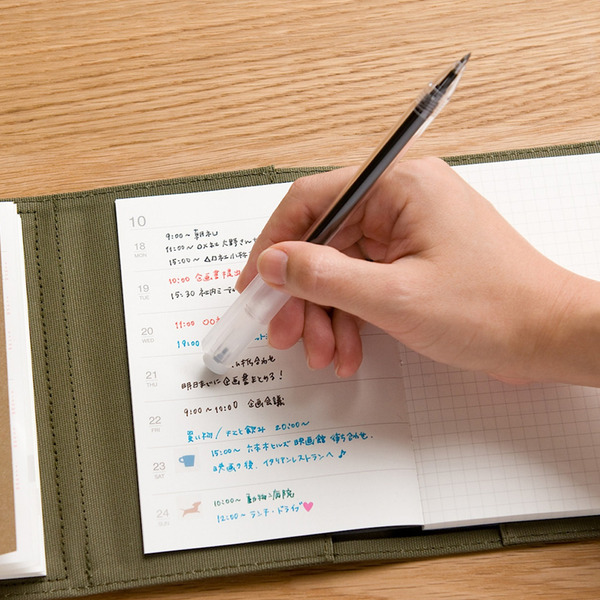 10
18
MON
9:00〜 朝礼
11:00〜 □×社 大野さん
15:00〜 △□社 小林
19
TUE
10:00 企画書提出
15:30 社内ミーティ
20
WED
11:00 ○○
19:00
21
THU
打ち合わせ
明日までに企画書まとめる!
22
FRI
9:00〜10:00 企画会議
買い物/ 飲み 20:00〜
23
SAT
15:00〜 六本木ヒルズ 映画館 待ち合わせ.
映画の後、イタリアンレストランへ♪
24
SUN
10:00〜 動物病院
12:00〜 ランチ・ドライブ